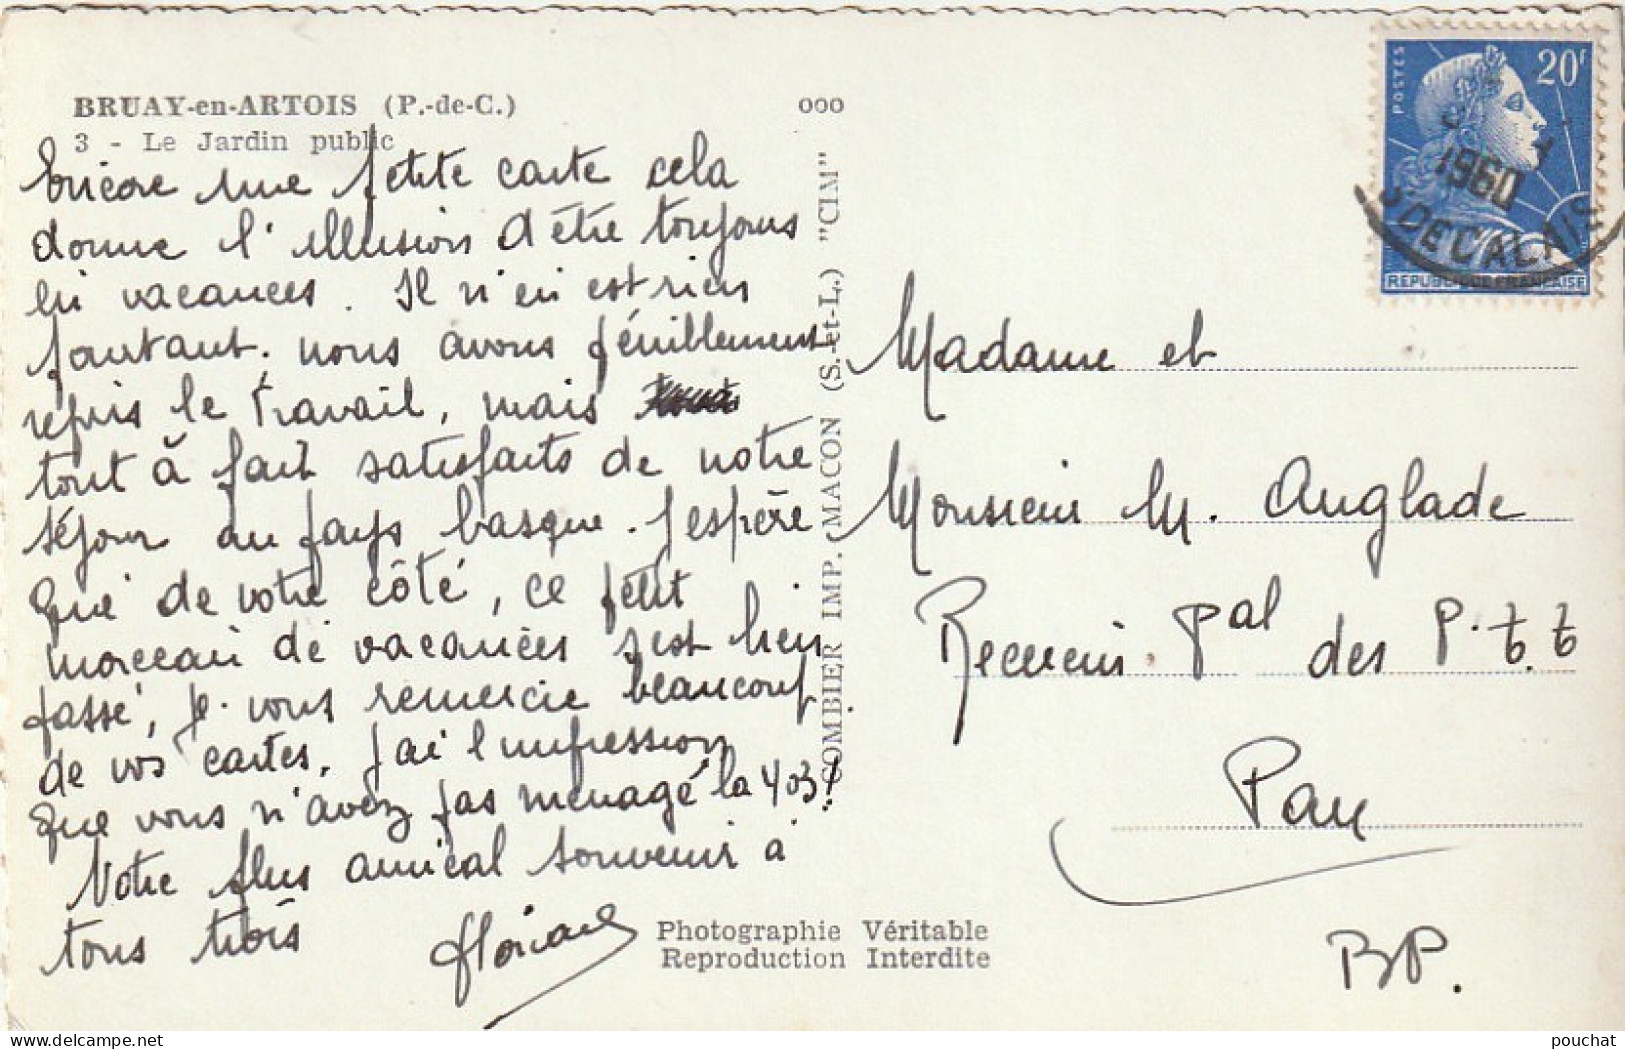 BRUAY-en-ARTOIS (P.-de-C.)
3 - Le Jardin public
ooo
Encore une petite carte cela
donne l'illusion d'être toujours
en vacances. Il n'en est rien
pourtant. nous avons péniblement
repris le travail, mais
tout à fait satisfaits de notre
séjour au pays basque. J'espère
que de votre côté, ce petit
morceau de vacances s'est bien
passé, je vous remercie beaucoup
de vos cartes, j'ai l'impression
que vous n'avez pas ménagé la 403!
Votre plus amical souvenir à
tous trois
COMBIER IMP. MACON (S.-et-L.) "CIM"
Photographie Véritable
Reproduction Interdite
POSTES
20F
1960
S DE CALAIS
REPUBLIQUE FRANÇAISE
Madame et
Monsieur M. Anglade
Receveur Pal des P.t.t
Pau
BP.
pouchat